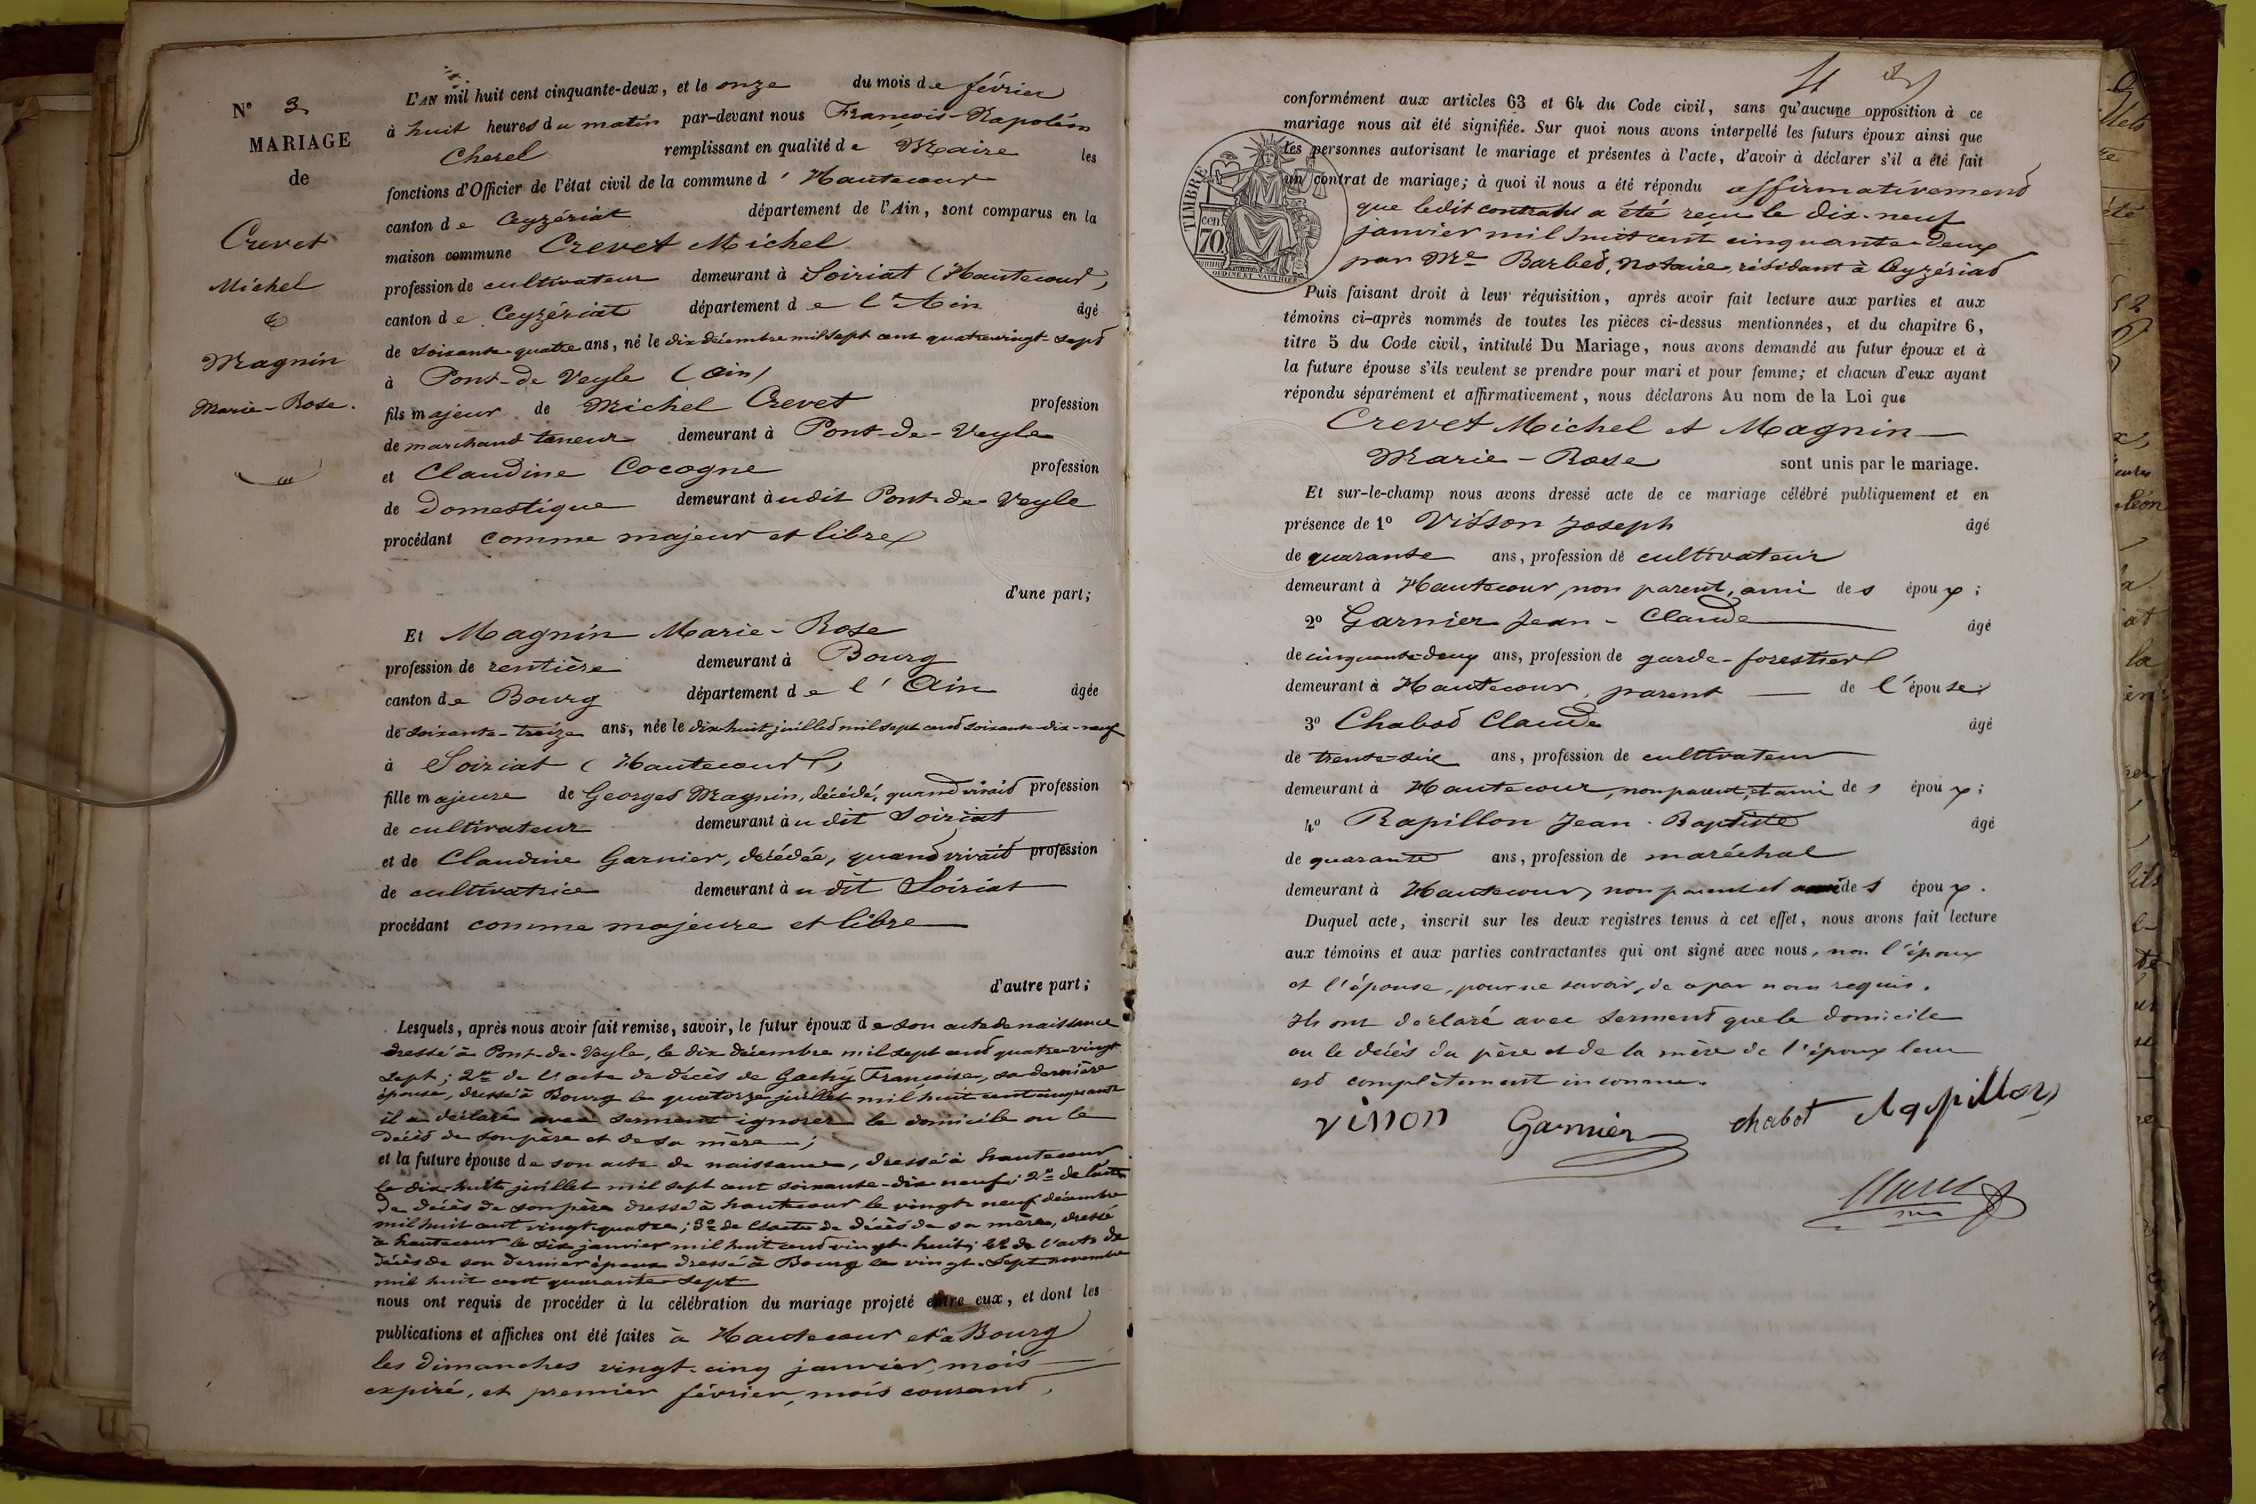 N° 3
MARIAGE
de
Crevet
Michel
&
Magnin
Marie-Rose.
L'AN mil huit cent cinquante-deux, et le onze du mois de février
à huit heures du matin par-devant nous François-Napoléon
Cherel remplissant en qualité de Maire les
fonctions d'Officier de l'état civil de la commune d'Hautecour
canton de Ceyzériat département de l'Ain, sont comparus en la
maison commune Crevet Michel
profession de cultivateur demeurant à Soiriat (Hautecour)
canton de Ceyzériat département de l'Ain âgé
de soixante-quatre ans, né le dix décembre mil sept cent quatre vingt-sept
à Pont-de Veyle (Ain)
fils majeur de Michel Crevet profession
de marchand taneur demeurant à Pont-de-Veyle
et Claudine Cocogne profession
de Domestique demeurant à udit Pont-de-Veyle
procédant comme majeur et libre
d'une part;
Et Magnin Marie-Rose
profession de rentière demeurant à Bourg
canton de Bourg département de l'Ain âgée
de soixante-treize ans, née le dix-huit juillet mil sept cent soixante-dix-neuf
à Soiriat (Hautecour)
fille majeure de Georges Magnin, décédé, quand vivait profession
de cultivateur demeurant à udit Soiriat
et de Claudine Garnier, décédée, quand vivait profession
de cultivatrice demeurant à udit Soiriat
procédant comme majeure et libre
d'autre part;
Lesquels, après nous avoir fait remise, savoir, le futur époux de son acte de naissance
dressé à Pont-de-Veyle, le dix décembre mil sept cent quatre vingt
sept; 2° de l'acte de décès de Gachy Françoise, sa dernière
épouse, dressé à Bourg le quatorze juillet mil huit cent cinquante
il a déclaré avec serment ignorer le domicile ou le
décès de son père et de sa mère;
et la future épouse de son acte de naissance, dressé à hautecour
le dix-huit juillet mil sept cent soixante-dix neuf; 2° de l'acte
de décès de son père dressé à hautecour le vingt-neuf décembre
mil huit cent vingt-quatre; 3° de l'acte de décès de sa mère, dressé
à hautecour le six janvier mil huit cent vingt-huit; 4° de l'acte de
décès de son dernier époux dressé à Bourg le vingt-sept novembre
mil huit cent quarante-sept
nous ont requis de procéder à la célébration du mariage projeté entre eux, et dont les
publications et affiches ont été faites à Hautecour et à Bourg
les dimanches vingt-cinq janvier, mois
expiré, et premier février, mois courant,
conformément aux articles 63 et 64 du Code civil, sans qu'aucune opposition à ce
mariage nous ait été signifiée. Sur quoi nous avons interpellé les futurs époux ainsi que
les personnes autorisant le mariage et présentes à l'acte, d'avoir à déclarer s'il a été fait
un contrat de mariage; à quoi il nous a été répondu affirmativement
que ledit contrat a été reçu le dix-neuf
janvier mil huit cent cinquante-deux
par Me Barbet, Notaire, résidant à Ceyzériat
TIMBRE
CEN
70
OUDINE ET VAUTHIER
Puis faisant droit à leur réquisition, après avoir fait lecture aux parties et aux
témoins ci-après nommés de toutes les pièces ci-dessus mentionnées, et du chapitre 6,
titre 5 du Code civil, intitulé Du Mariage, nous avons demandé au futur époux et à
la future épouse s'ils veulent se prendre pour mari et pour femme; et chacun d'eux ayant
répondu séparément et affirmativement, nous déclarons Au nom de la Loi que
Crevet Michel et Magnin
Marie-Rose sont unis par le mariage.
Et sur-le-champ nous avons dressé acte de ce mariage célébré publiquement et en
présence de 1° Visson Joseph âgé
de quarante ans, profession de cultivateur
demeurant à Hautecour, non parent, ami des époux;
2° Garnier Jean-Claude âgé
de cinquante-deux ans, profession de garde-forestier
demeurant à Hautecour, parent de l'épouse;
3° Chabod Claude âgé
de trente-six ans, profession de cultivateur
demeurant à Hautecour, non parent, et ami des époux;
4° Rapillon Jean-Baptiste âgé
de quarante ans, profession de maréchal
demeurant à Hautecour, non parent et ami des époux.
Duquel acte, inscrit sur les deux registres tenus à cet effet, nous avons fait lecture
aux témoins et aux parties contractantes qui ont signé avec nous, non l'époux
et l'épouse, pour ne savoir, de a par nous requis.
Ils ont déclaré avec serment que le domicile
ou le décès du père et de la mère de l'époux leur
est complètement inconnu.
visson Garnier chabot Rapillon